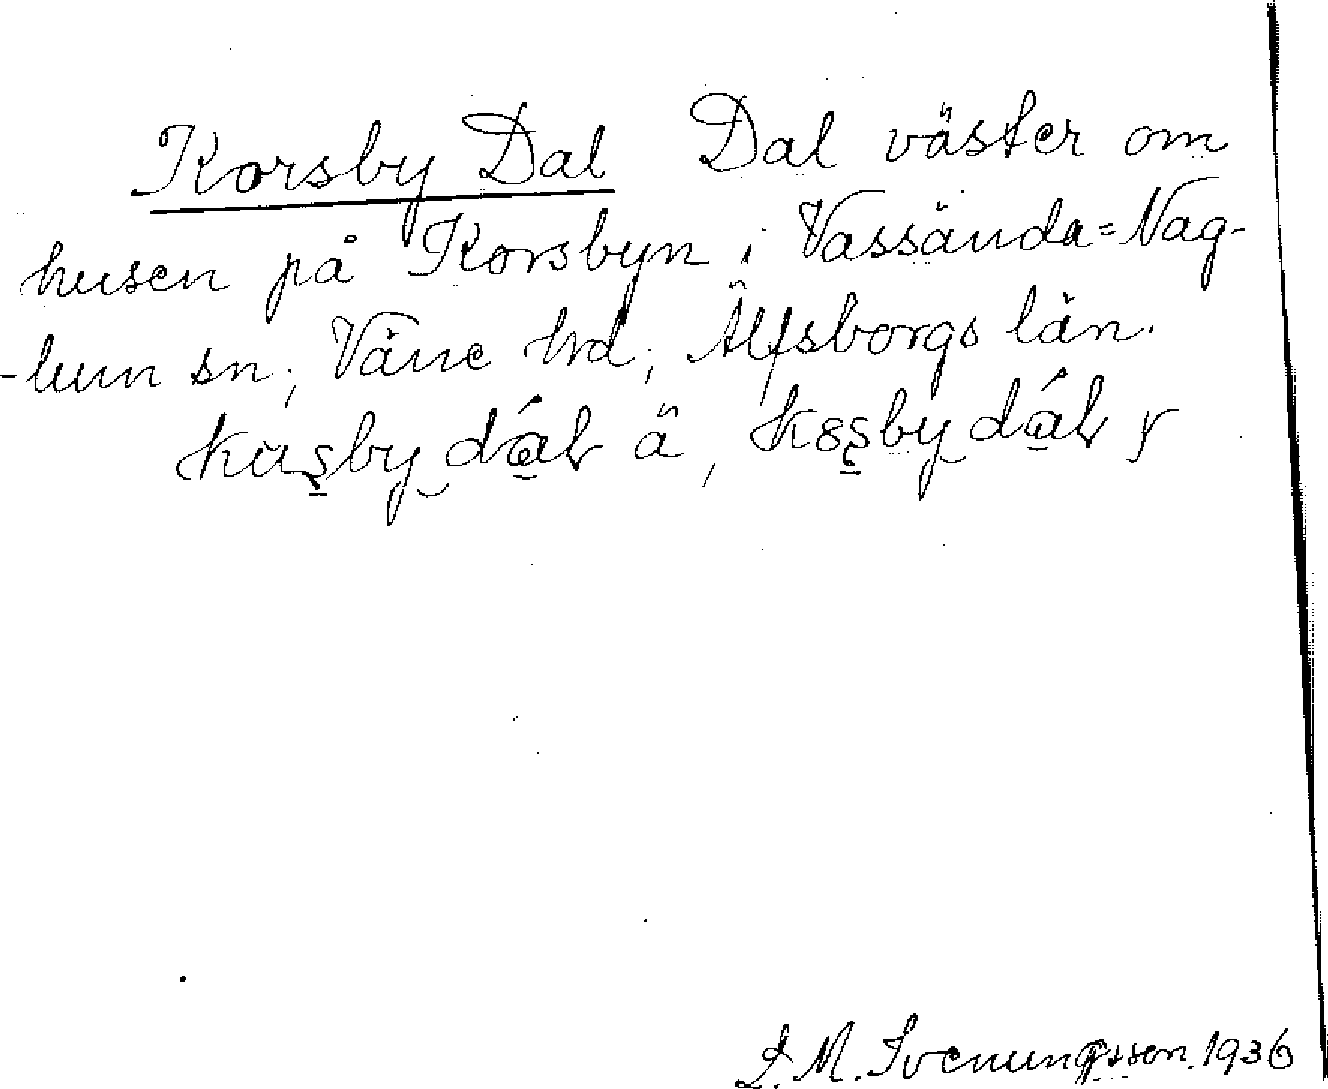 Korsby Dal Dal väster om
husen på Korsbyn i Vassända=Nag-
-lum sn, Väne hd, Älfsborgs län.
dál ä, dál y
S. M. Svenungsson. 1936